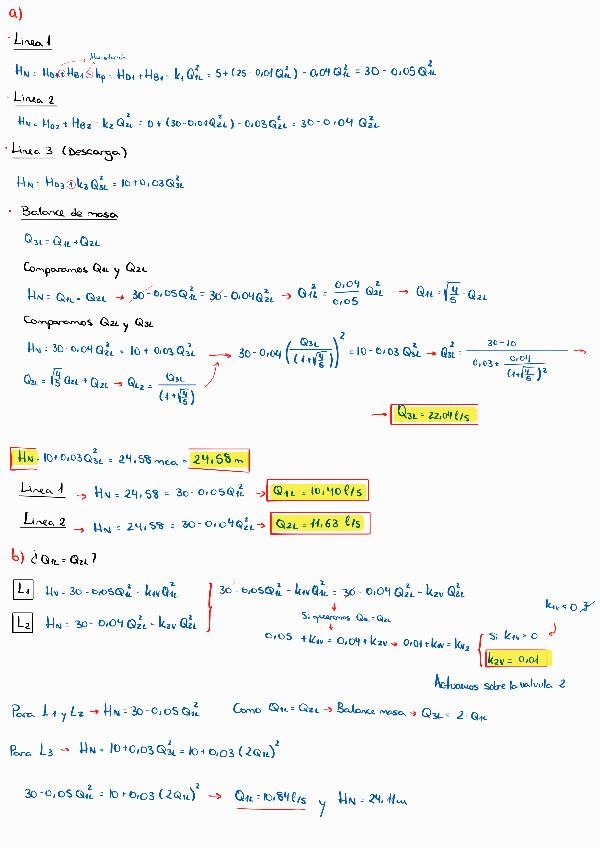 a)
· Linea 1
Manometrica
HN = HD1 + HB1 - hp = HD1 + HB1 - k1 Q1L² = 5 + (25 - 0,01Q1L²) - 0,04Q1L² = 30 - 0,05Q1L²
· Linea 2
HN = HD2 + HB2 - k2 Q2L² = 0 + (30 - 0,01Q2L²) - 0,03Q2L² = 30 - 0,04 Q2L²
· Linea 3 (Descarga)
HN = HD3 + k3 Q3L² = 10 + 0,03Q3L²
· Balance de masa
Q3L = Q1L + Q2L
Comparamos Q1L y Q2L
HN = Q1L = Q2L → 30 - 0,05Q1L² = 30 - 0,04Q2L² → Q1L² = 0,04/0,05 Q2L² → Q1L = √(4/5) · Q2L
Comparamos Q2L y Q3L
HN = 30 - 0,04 Q2L² = 10 + 0,03 Q3L² → 30 - 0,04 (Q3L/(1+√(4/5)))² = 10 - 0,03 Q3L² → Q3L² = (30 - 10)/(0,03 + 0,04/(1+√(4/5))²) →
Q3L = √(4/5) Q2L + Q2L → QL2 = Q3L/(1+√(4/5))
→ Q3L = 22,04 l/s
HN = 10 + 0,03Q3L² = 24,58 mca = 24,58 m
Linea 1 → HN = 24,58 = 30 - 0,05Q1L² → Q1L = 10,40 l/s
Linea 2 → HN = 24,58 = 30 - 0,04Q2L² → Q2L = 11,63 l/s
b) ¿Q1L = Q2L?
L1 HN = 30 - 0,05Q1L² - k1V Q1L² 30 - 0,05Q1L² - k1V Q1L² = 30 - 0,04 Q2L² - k2V Q2L²
L2 HN = 30 - 0,04 Q2L² - k2V Q2L²
Si queremos Q1L = Q2L
k1V < 0
0,05 + k1V = 0,04 + k2V → 0,01 + k1V = kV2
Si k1V = 0
k2V = 0,01
Actuamos sobre la valvula 2
Para L1 y L2 → HN = 30 - 0,05Q1L² Como Q1L = Q2L → Balance masa → Q3L = 2 · Q1L
Para L3 → HN = 10 + 0,03 Q3L² = 10 + 0,03 (2Q1L)²
30 - 0,05Q1L² = 10 + 0,03 (2Q1L)² → Q1L = 10,84 l/s y HN = 24,11m